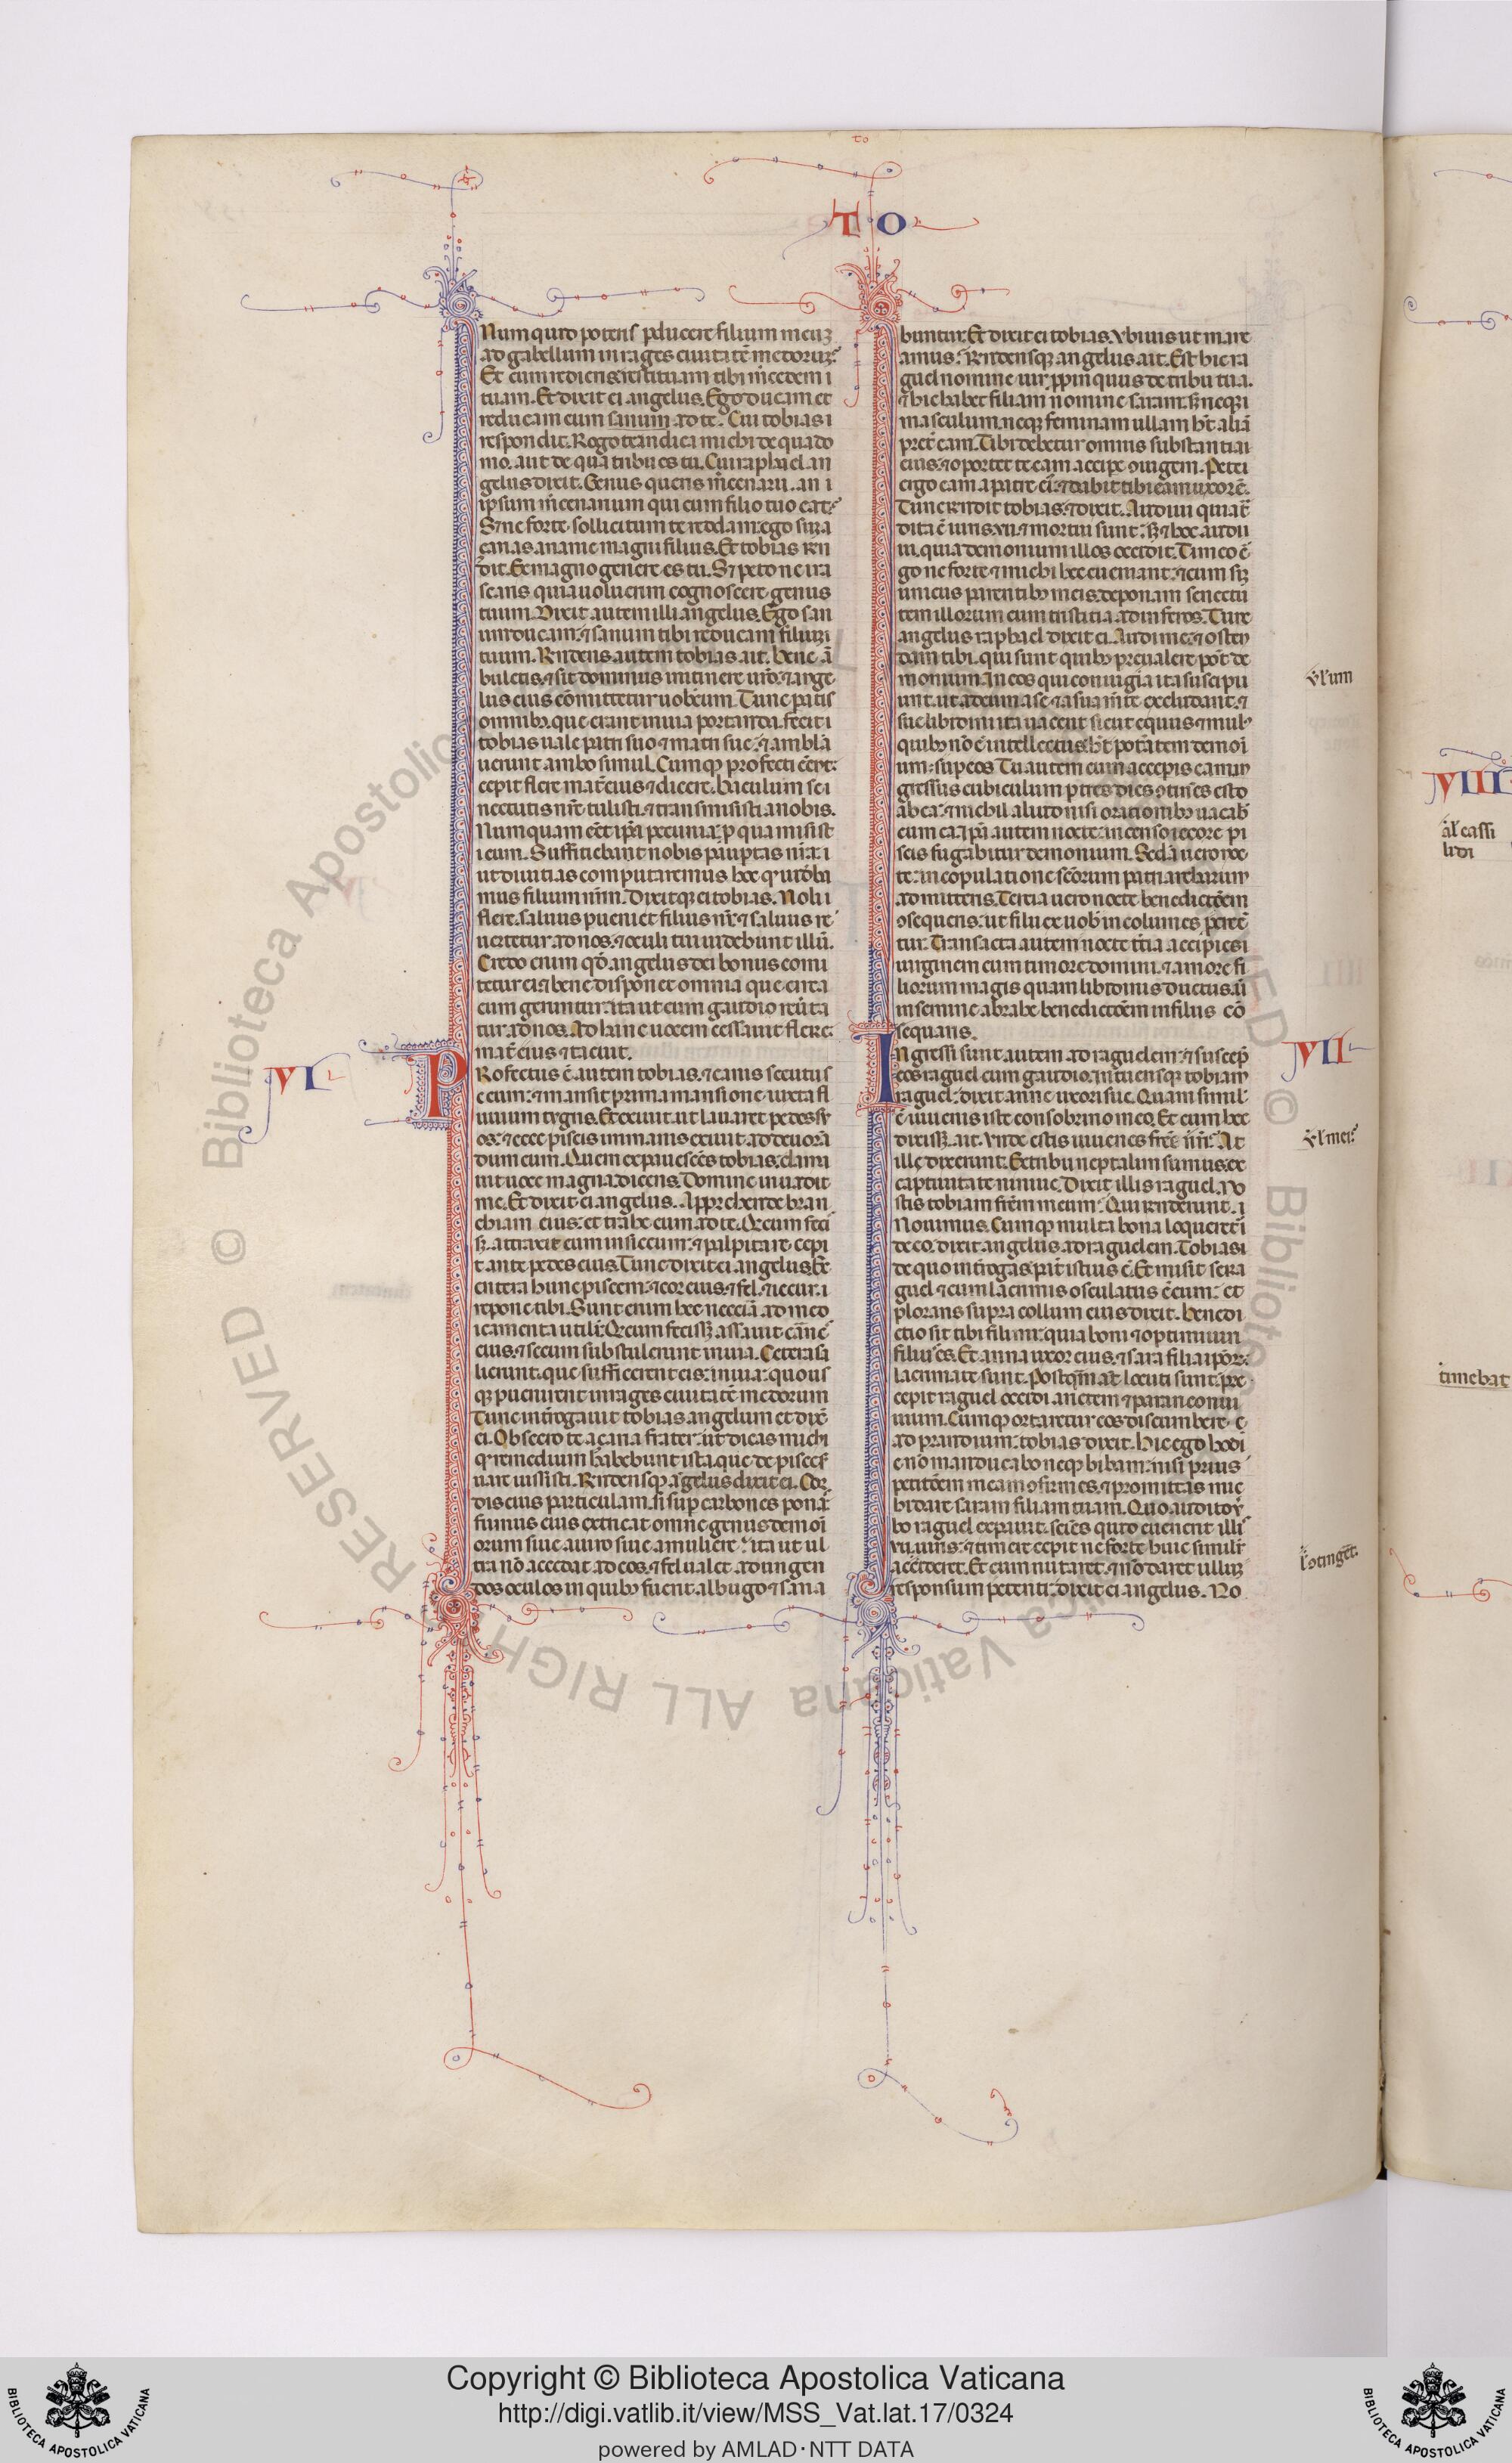 to
TO
Numquid poteris pducere filium meuz
ad gabellum in rages ciuitatē medoruz?
Et cum rediens restituam tibi m̄cedem
tuam. Et dixit ei angelus. Ego ducam et
reducam eum sanum ad te. Cui tobias
respondit. Rogo te indica michi de qua do
mo. aut de qua tribu es tu. Cui raphael an
gelus dixit. Genus queris m̄cenarii. an
ipsum m̄cenarium qui cum filio tuo eat?
S; ne forte sollicitum te reddam: ego sum
azarias ananie magni filius. Et tobias rn
dit. Ex magno genere es tu. S; peto ne ira
scaris. quia uoluerim cognoscere genus
tuum. Dixit autem illi angelus. Ego san
um ducam: ⁊ sanum tibi reducam filium
tuum. Rndens autem tobias ait. bene ā
buletis. ⁊ sit dominus in itinere uro. ⁊ ange
lus eius comittetur uobcum. Tunc patis
omnib; que erant in uia portanda. fecit
tobias uale patri suo ⁊ matri sue. ⁊ ambla
uerunt ambo simul. Cumq; profecti eent:
cepit flere mat̄ eius ⁊ dicere. baculum se
nectutis nre tulisti. ⁊ transmisisti a nobis.
Numquam eet ipa pecunia. p qua misist
i eum. Sufficiebat nobis pauptas nra.
ut diuitias computaremus hoc q uideba
mus filium nrm. Dixitque ei tobias. Noli
flere. saluus pueniet filius nr. ⁊ saluus re
uertetur ad nos. ⁊ oculi tui uidebunt illū.
Credo enim qd angelus dei bonus comi
tetur ei. ⁊ bene disponet omnia que circa
eum geruntur. ita ut cum gaudio reuta
tur ad nos. Ad hanc uocem cessauit flere
mat̄ eius ⁊ tacuit.
VI
PRofectus ē autem tobias. ⁊ canis secutus
e eum: ⁊ mansit prima mansione iuxta fl
uuium tygris. Et exiuit ut lauaret pedes su
os: ⁊ ecce piscis immanis exiuit ad deuora
dum eum. Quem expauescēs tobias: clama
uit uoce magna dicens. Domine inuadit
me. Et dixit ei angelus. Apprehende bran
chiam eius: et trahe eum ad te. Q cum feci
s; attraxit eum in siccum: ⁊ palpitare cepi
t ante pedes eius. Tunc dixit ei angelus. Ex
entera hunc piscem: ⁊ cor eius. ⁊ fel. ⁊ iecur.
repone tibi. Sunt enim hec neccīa ad med
icamenta utilit̄. Q cum fecissz assauit carnē
eius. ⁊ secum sustulerunt in uia. Cetera sa
lierunt. que sufficerent eis in uia: quous
q; puenirent in rages ciuitatē medorum
Tunc int̄rogauit tobias angelum et dixē
ei. Obsecro te azaria frater: ut dicas michi
q remedium habebunt ista que de pisce s;
uare iussisti. Rndensq; angelus dixit ei. Cor
dis eius particulam. si sup carbones ponā:
fumus eius extricat omne genus demoī
orum siue a uiro siue a muliere: ita ut ul
tra nō accedat ad eos. ⁊ fel ualet ad ungen
dos oculos in quib; fuerit albugo ⁊ sana
buntur. Et dixit ei tobias. Vbi uis ut mane
amus? Rndensq; angelus ait. Est hic ra
guel nomine uir ppinquus de tribu tua.
⁊ hic habet filiam nomine saram. s; neq;
masculum neq; feminam ullam ht aliā
pret̄ eam. Tibi debetur omnis substantia
eius. ⁊ oportet te eam accipe ɔiugem. Pete
ergo eam a patre ei: ⁊ dabit tibi eam uxorē.
Tunc rndit tobias ⁊ dixit. Audiui q tradi
dita ē uiris. vii. ⁊ mortui sunt. s; ⁊ hoc audi
ui. quia demonium illos occidit. Timeo e
go ne forte ⁊ michi hec eueniant: ⁊ cum siz
unicus parentib; meis. deponam senectu
tem illorum cum tristitia ad inferos. Tunc
angelus raphael dixit ei. Audi me: ⁊ osten
dam tibi. qui sunt quib; preualere pot de
monium. In eos qui coniugia ita suscipi
unt. ut deum a se ⁊ a sua m̄te excludant. ⁊
sue libidini ita uacent sicut equus ⁊ mul
quib; nō ē intellectus: ht potatem demoi
um sup eos. Tu autem cum accepis eam in
gressus cubiculum p tres dies ɔtines esto
ab ea: ⁊ michil aliud nisi orationib; uacab
cum ea. Ipa autem nocte: incenso iecore pi
scis fugabitur demonium. Seda uero noc
te: in copulatione scōrum patriarcharum
admitteris. Tertia uero nocte benedictōem
ɔsequeris: ut filii ex uob incolumes pcreē
tur. Transacta autem nocte t̄tia accipies
uirginem cum timore domini. ⁊ amore fi
liorum magis quam libidinis ductus. ū
in semine abrahe benedictōem in filiis cō
sequaris.
VII
INgressi sunt autem ad raguelem: ⁊ suscep
eos raguel cum gaudio. Intuensq; tobiam
raguel: dixit anne uxori sue. Quam simil
ē iuuenis iste consobrino meo. Et cum hec
dixissz. ait. Vnde estis iuuenes fres nri? At
illi dixerunt. Ex tribu neptalim sumus. ex
captiuitate niniue. Dixit illis raguel. No
stis tobiam frēm meum? Qui rnderunt.
Nouimus. Cumq; multa bona loqueret̄
de eo. dixit angelus ad raguelem. Tobias
de quo int̄rogas. pat̄ istius ē. Et misit se ra
guel ⁊ cum lacrimis osculatus ē eum: et
plorans supra collum eius dixit. benedi
ctio sit tibi fili mi: quia boni ⁊ optimi uiri
filius es. Et anna uxor eius. ⁊ sara filia ipor:
lacrimate sunt. Postqm at locuti sunt: pre
cepit raguel occidi arietem ⁊ parari conui
uium. Cumq; ortaretur eos discumbere
ad prandium: tobias dixit. Hic ego hodi
e nō manducabo neq; bibam: nisi prius
petitōem meam ɔfirmes. ⁊ promittas mic
hi dare saram filiam tuam. Quo audito v
bo raguel expauit. sciēs quid euenerit illi
vii. uiris: ⁊ timere cepit ne forte huic similit̄
accederet. Et cum nutaret. ⁊ nō daret ullum
responsum petenti: dixit ei angelus. No
VIII
Copyright © Biblioteca Apostolica Vaticana
http://digi.vatlib.it/view/MSS_Vat.lat.17/0324
powered by AMLAD·NTT DATA